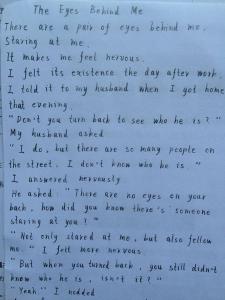 The Eyes Behind Me
There are a pair of eyes behind me.
Staring at me.
It makes me feel nervous.
I felt its existence the day after work.
I told it to my husband when I got home
that evening.
"Don't you turn back to see who he is?"
My husband asked
"I do, but there are so many people on
the street. I don't know who he is."
I answered nervously
He asked "There are no eyes on your
back, how did you know there's someone
staring at you?"
"Not only stared at me, but also follow
me." I felt more nervous.
"But when you turned back, you still didn't
know who he is, isn't it?"
"Yeah." I nodded